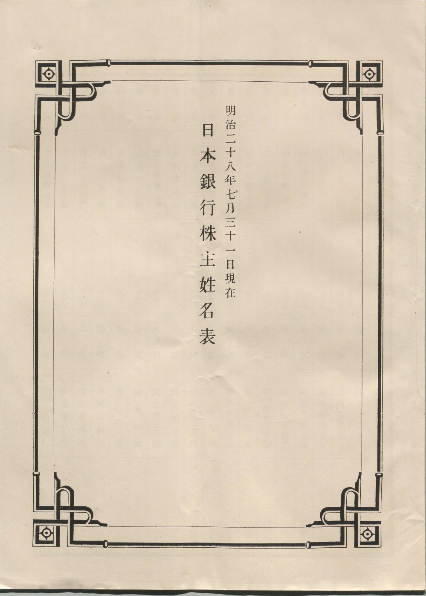 明治二十八年七月三十一日現在
日本銀行株主姓名表